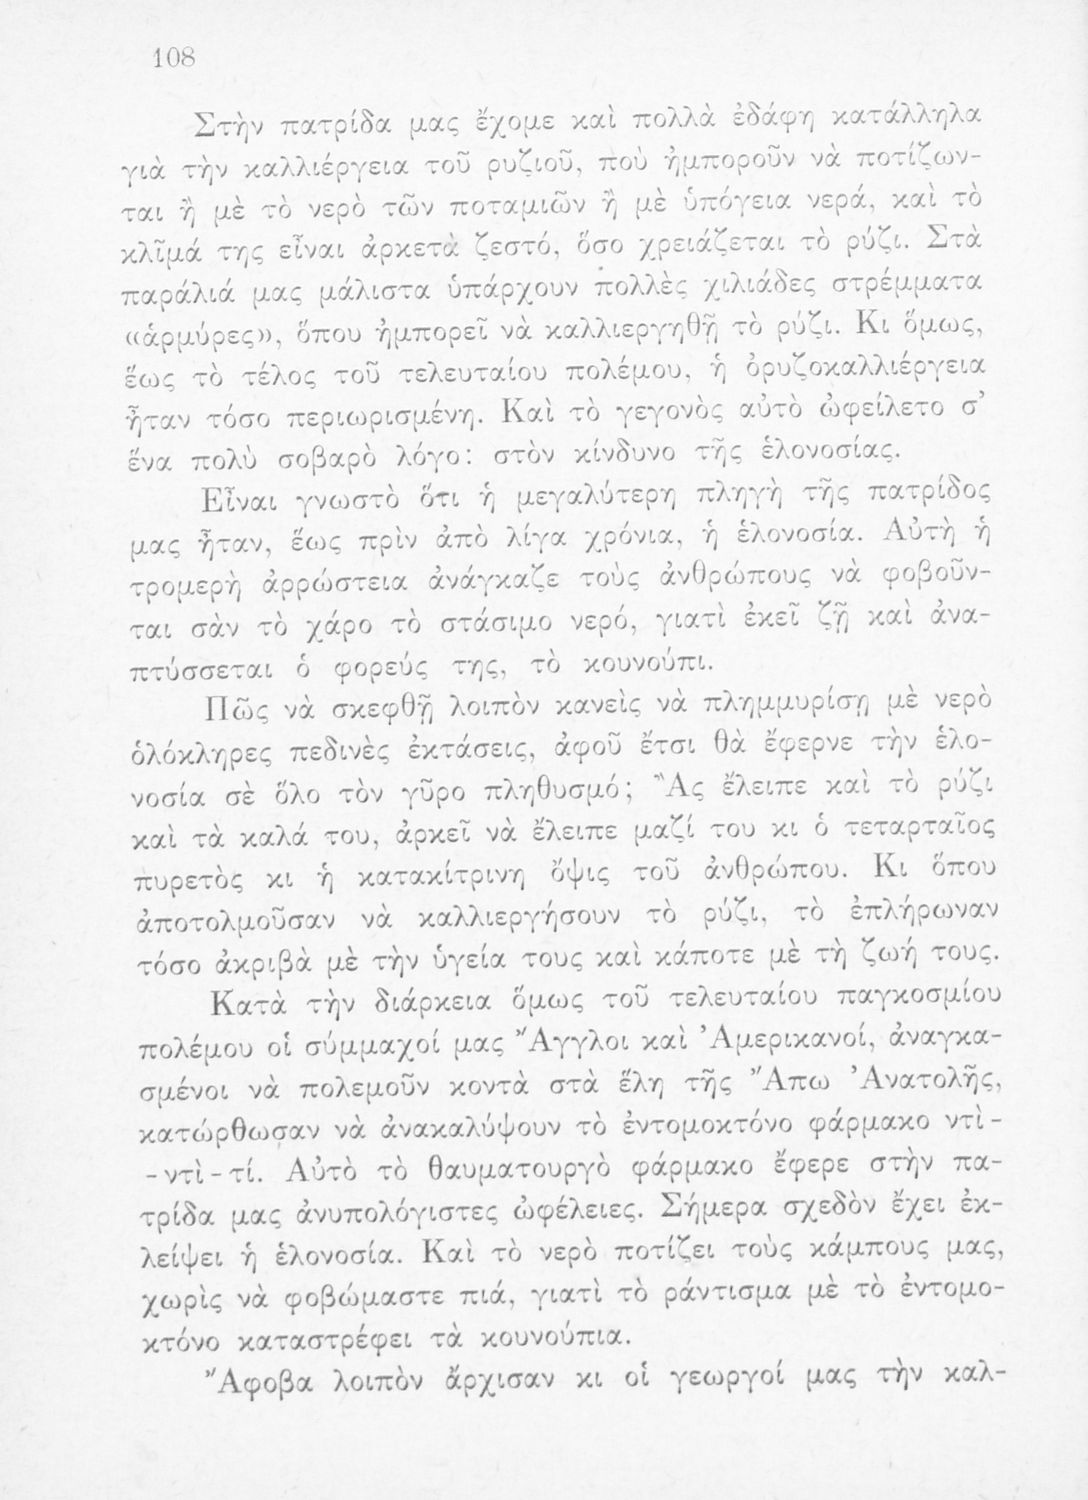 108
Στὴν πατρίδα μας ἔχομε καὶ πολλὰ ἐδάφη κατάλληλα
γιὰ τὴν καλλιέργεια τοῦ ρυζιοῦ, ποὺ ἠμποροῦν νὰ ποτίζων-
ται ἢ μὲ τὸ νερὸ τῶν ποταμιῶν ἢ μὲ ὑπόγεια νερά, καὶ τὸ
κλῖμά της εἶναι ἀρκετὰ ζεστό, ὅσο χρειάζεται τὸ ρύζι. Στὰ
παράλιά μας μάλιστα ὑπάρχουν πολλὲς χιλιάδες στρέμματα
«ἁρμύρες», ὅπου ἠμπορεῖ νὰ καλλιεργηθῇ τὸ ρύζι. Κι ὅμως,
ἕως τὸ τέλος τοῦ τελευταίου πολέμου, ἡ ὀρυζοκαλλιέργεια
ἦταν τόσο περιωρισμένη. Καὶ τὸ γεγονὸς αὐτὸ ὠφείλετο σ’
ἕνα πολὺ σοβαρὸ λόγο: στὸν κίνδυνο τῆς ἑλονοσίας.
Εἶναι γνωστὸ ὅτι ἡ μεγαλύτερη πληγὴ τῆς πατρίδος
μας ἦταν, ἕως πρὶν ἀπὸ λίγα χρόνια, ἡ ἑλονοσία. Αὐτὴ ἡ
τρομερὴ ἀρρώστεια ἀνάγκαζε τοὺς ἀνθρώπους νὰ φοβοῦν-
ται σὰν τὸ χάρο τὸ στάσιμο νερό, γιατὶ ἐκεῖ ζῇ καὶ ἀνα-
πτύσσεται ὁ φορεύς της, τὸ κουνούπι.
Πῶς νὰ σκεφθῇ λοιπὸν κανεὶς νὰ πλημμυρίσῃ μὲ νερὸ
ὁλόκληρες πεδινὲς ἐκτάσεις, ἀφοῦ ἔτσι θὰ ἔφερνε τὴν ἑλο-
νοσία σὲ ὅλο τὸν γῦρο πληθυσμό; Ἂς ἔλειπε καὶ τὸ ρύζι
καὶ τὰ καλά του, ἀρκεῖ νὰ ἔλειπε μαζί του κι ὁ τεταρταῖος
πυρετὸς κι ἡ κατακίτρινη ὄψις τοῦ ἀνθρώπου. Κι ὅπου
ἀποτολμοῦσαν νὰ καλλιεργήσουν τὸ ρύζι, τὸ ἐπλήρωναν
τόσο ἀκριβὰ μὲ τὴν ὑγεία τους καὶ κάποτε μὲ τὴ ζωή τους.
Κατὰ τὴν διάρκεια ὅμως τοῦ τελευταίου παγκοσμίου
πολέμου οἱ σύμμαχοί μας Ἄγγλοι καὶ Ἀμερικανοί, ἀναγκα-
σμένοι νὰ πολεμοῦν κοντὰ στὰ ἕλη τῆς Ἄπω Ἀνατολῆς,
κατώρθωσαν νὰ ἀνακαλύψουν τὸ ἐντομοκτόνο φάρμακο ντὶ-
-ντὶ-τί. Αὐτὸ τὸ θαυματουργὸ φάρμακο ἔφερε στὴν πα-
τρίδα μας ἀνυπολόγιστες ὠφέλειες. Σήμερα σχεδὸν ἔχει ἐκ-
λείψει ἡ ἑλονοσία. Καὶ τὸ νερὸ ποτίζει τοὺς κάμπους μας,
χωρὶς νὰ φοβώμαστε πιά, γιατὶ τὸ ράντισμα μὲ τὸ ἐντομο-
κτόνο καταστρέφει τὰ κουνούπια.
Ἄφοβα λοιπὸν ἄρχισαν κι οἱ γεωργοί μας τὴν καλ-